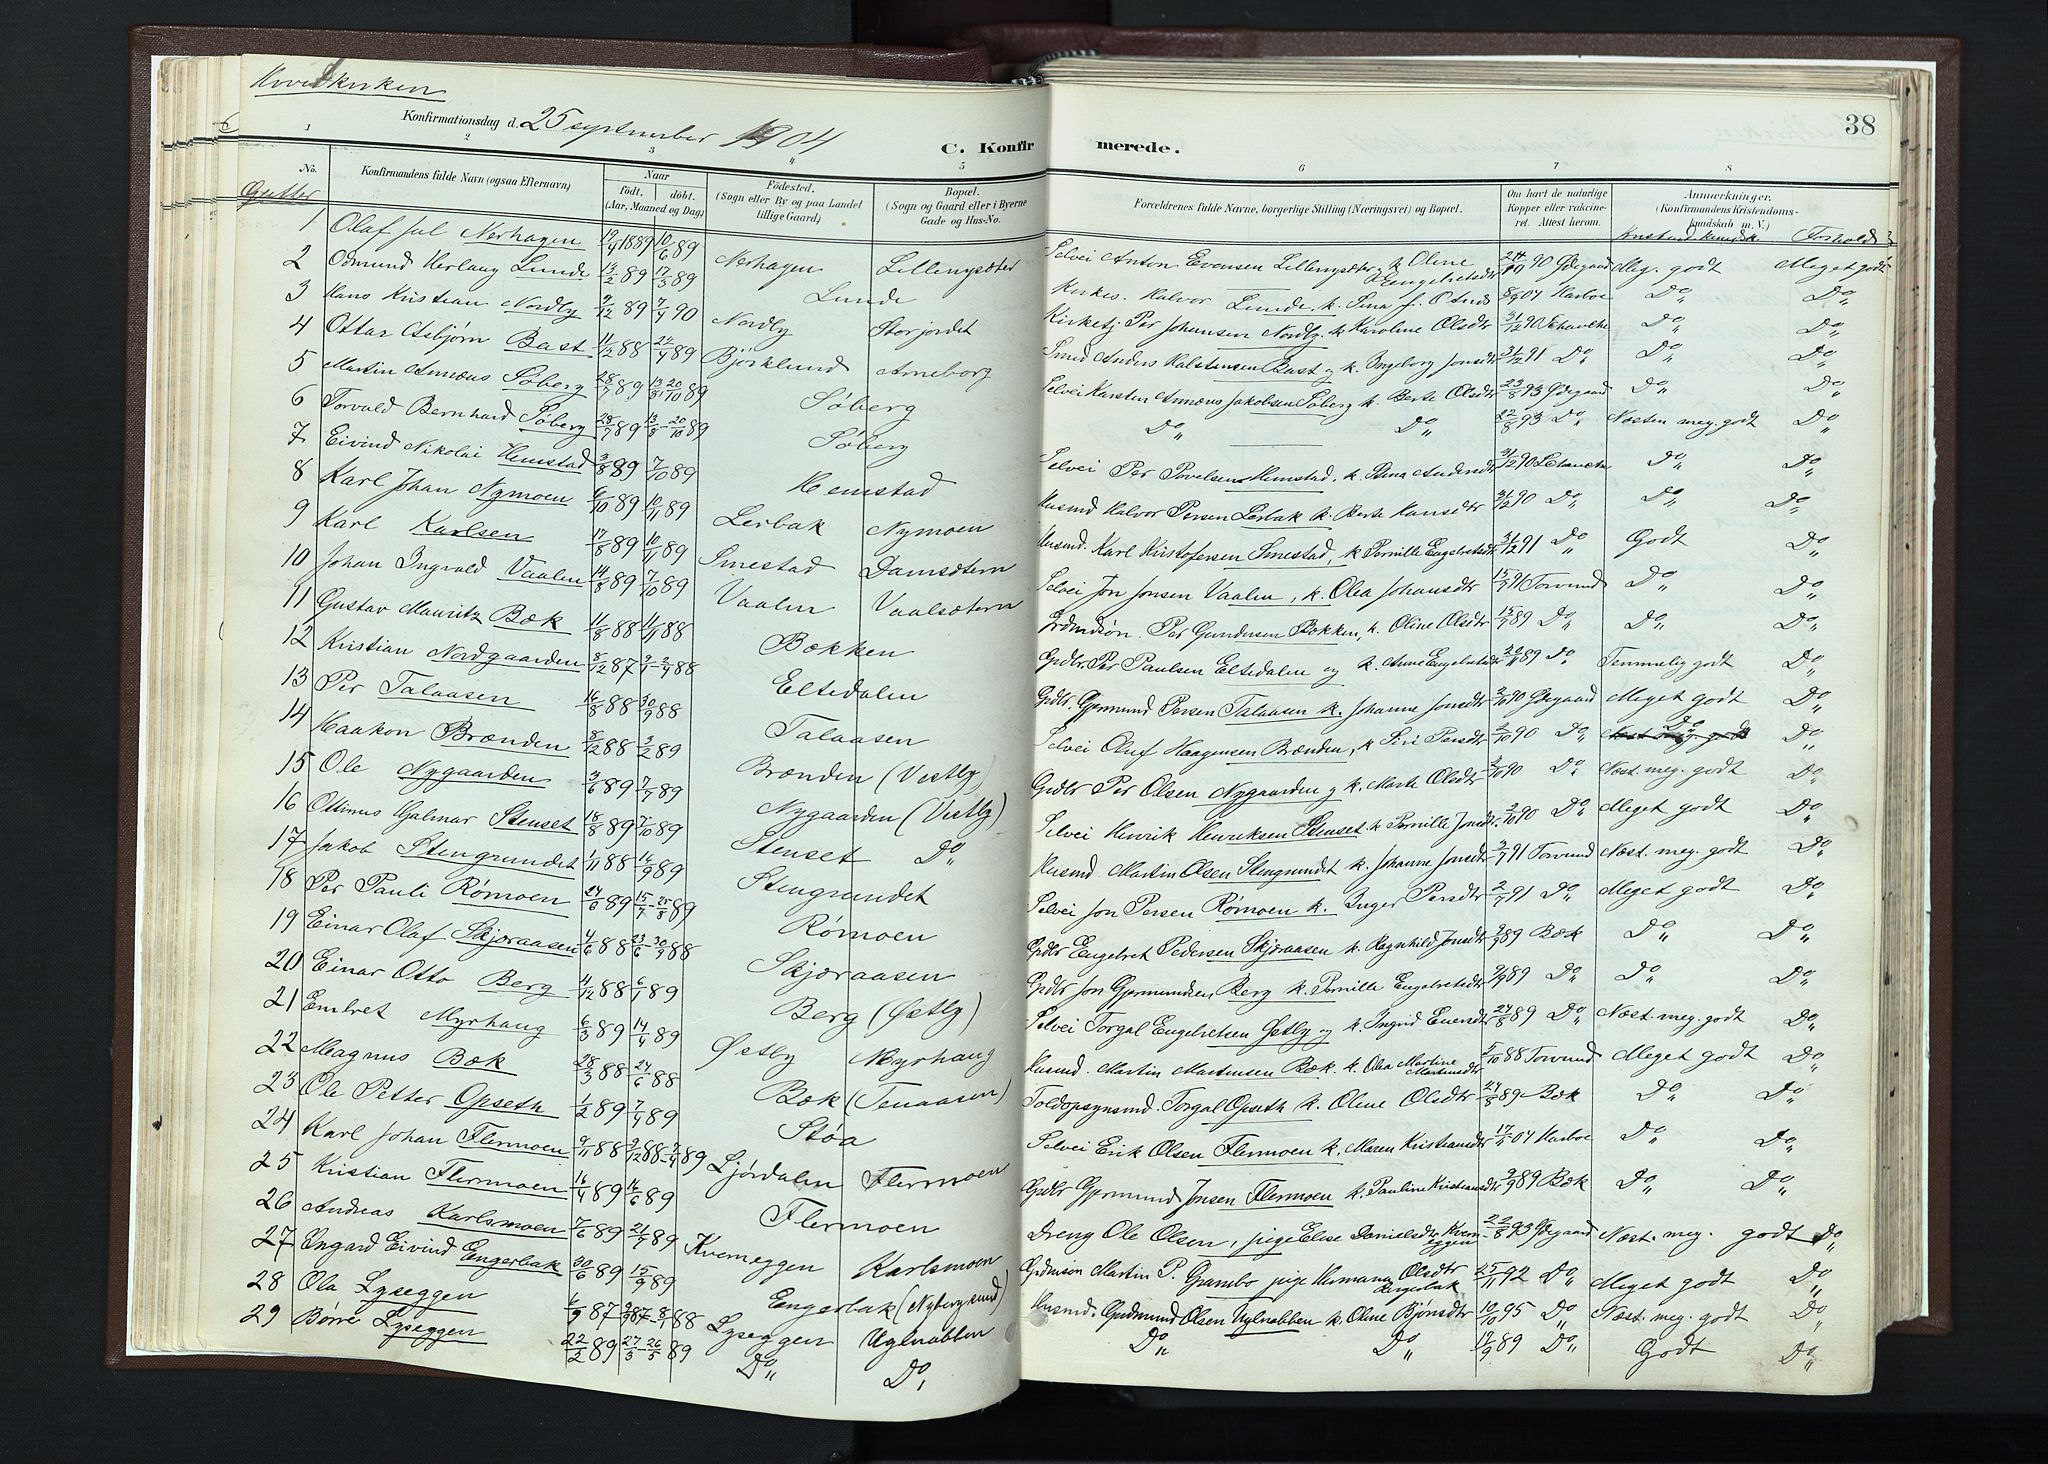 Hovedkirken
Konfirmationsdag d. 25 september 1904
C. Konfirmerede.
38
1 2 3 4 5 6 7 8
No.
Konfirmandens fulde Navn (ogsaa Efternavn)
Naar født. døbt. (Aar, Maaned og Dag)
Fødested. (Sogn eller By og paa Landet tillige Gaard)
Bopæl. (Sogn og Gaard eller i Byerne Gade og Hus-No.
Forældrenes fulde Navne, borgerlige Stilling (Næringsvei) og Bopæl.
Om havt de naturlige Kopper eller vakcineret. Attest herom.
Anmærkninger. (Konfirmandens Kristendomskundskab m. V.)
Forhold
Gutter
1 Olaf Nerhagen 1889 10/6 89 Nerhagen Lillenysæter Selvei Anton Evensen Lillenysæter k. Oline Engelretsdtr 90 Ødegaard Meg. godt Meget godt
2 Odmund Herlaug Lunde 13/2 89 17/3 89 Lunde Kirkes. Halvor Lunde, k. 04 Harboe Do Do
3 Hans Kristian Nordby 9/12 89 7/4 90 Nordby Storjordet Kirketj Per Johansen Nordby k. Karoline Olsdtr 31/12 90 Schanche Do Do
4 Ottar Asbjørn Bast 11/12 88 22/4 89 Bjørklund Arneborg Smed Anders Halstensen Bast og k. Ingeborg Jonsdtr 31/12 91 Do Do Do
5 Martin Annæus Søberg 28/7 89 13/8-20/10 89 Søberg Selvei Karsten Annæus Jakobsen Søberg k. Berte Olsdtr 23/8 93 Ødegaard Do Do
6 Torvald Bernhard Søberg 28/7 89 13/8-20/10 89 Søberg Do Do 22/8 93 Do Næsten meg. godt Do
7 Eivind Nikolai Hemstad 3/8 89 7/10 89 Hemstad Selvei Per Povelsen Hemstad, k. Andersdtr 31/12 90 Schanche Do Do
8 Karl Johan Nymoen 6/10 89 10/11 89 Lerbak Nymoen Husmd Halvor Persen Lerbak k. Berte Hansdtr 31/12 90 Do Do Do
9 Karl Karlsen 17/8 89 10/11 89 Smestad Damsætern Husmd. Karl Kristofersen Smestad, k. Pernille Engelretsdtr 31/12 91 Do Godt Do
10 Johan Ingvald Vaalen 14/8 89 7/10 89 Vaalen Vaalsætern Selvei Jon Jonsen Vaalen, k. Olea Johansdtr 15/7 91 Torvund Do Do
11 Gustav Mauritz Bæk 11/8 88 11/11 88 Bækken Grdmdsøn. Per Gundersen Bækken, k. Oline Olsdtr 15/9 89 Do Do Do
12 Kristian Nordgaarden 8/12 87 2/4 88 Eltsdalen Grdbr Per Paulsen Eltsdalen og k. Anne Engelretsdtr 89 Do Temmelig godt Do
13 Per Talaasen 16/8 88 30/9 88 Talaasen Grdbr. Gjermund Persen Talaasen k. Johanne Jonsdtr 2/10 90 Ødegaard Meget godt Do
14 Haakon Brænden 8/12 88 3/2 89 Brænden (Vestby) Selvei Oluf Haagensen Brænden, k. Siri Persdtr 2/10 90 Do Do Do
15 Ole Nygaarden 3/6 89 7/7 89 Nygaarden (Vestby) Grdbr Per Olsen Nygaarden og k. Marte Olsdtr 2/10 90 Do Næst. meg. godt Do
16 Ottinus Hjalmar Stenset 18/8 89 7/10 89 Stenset Do Selvei Henrik Henriksen Stenset k. Pernille Jonsdtr. 2/10 90 Do Meget godt Do
17 Jakob Stengrundet 1/11 88 16/9 89 Stengrundet Husmd Martin Olsen Stengrundet k. Johanne Jonsdtr 2/7 91 Torvund Næst. meg. godt Do
18 Per Pauli Rømoen 24/6 89 15/7-25/8 89 Rømoen Selvei Jon Persen Rømoen k. Inger Persdtr 2/7 91 Do Meget godt Do
19 Einar Olaf Skjæraasen 4/6 88 23/6-30/9 88 Skjæraasen Grdbr Engelret Pedersen Skjæraasen k. Ragnhild Jonsdtr 2/9 89 Bæk Do Do
20 Einar Otto Berg 4/12 88 6/1 89 Berg (Østby) Grdbr Jon Gjermundsen Berg k. Pernille Engelretsdtr 2/9 89 Do Do Do
21 Embret Myrhaug 6/3 89 14/4 89 Østby Myrhaug Selvei Torgal Engelretsen Østby og k. Ingrid Evensdtr 27/8 89 Do Næst. meg. godt Do
22 Magnus Bæk 28/3 88 24/6 88 Bæk (Tenaasen) Husmd. Martin Martensen Bæk k. Olea Martine Martinsdtr 5/10 88 Torvund Meget godt Do
23 Ole Petter Opseth 1/2 89 7/4 89 Støa Toldopsynsmd. Torgal Opseth k. Oline Olsdtr 27/8 89 Bæk Do Do
24 Karl Johan Flermoen 9/11 88 9/12 88-7/4 89 Ljørdalen Flermoen Selvei Erik Olsen Flermoen k. Maren Kristiansdtr 04 Harboe Do Do
25 Kristian Flermoen 16/4 89 16/6 89 Flermoen Grdbr Gjermund Jonsen Flermoen k. Pauline Kristiansdtr 2/9 89 Bæk Do Do
26 Andreas Karlsmoen 7/6 89 21/7 89 Kverneggen Karlsmoen Dreng Ole Olsen, pige Elise Danielsdtr Kverneggen 22/8 93 Ødegaard Næst. meg. godt Do
27 Yngard Eivind Engerbak 30/6 89 15/9 89 Engerbak (Nybergsund) Grdmsøn Martin P. Grambo pige Hermana Olsdtr Engerbak 25/11 92 Do Meget godt Do
28 Ola Lyseggen 87 88 Lyseggen Uglnabben Husmd. Gudmund Olsen Uglnabben k. Oline Bjønsdtr 10/10 95 Do Næst. meg. godt Do
29 Børre Lyseggen 22/2 89 27/3-26/5 89 Do Do Do Do 17/9 89 Do Godt Do